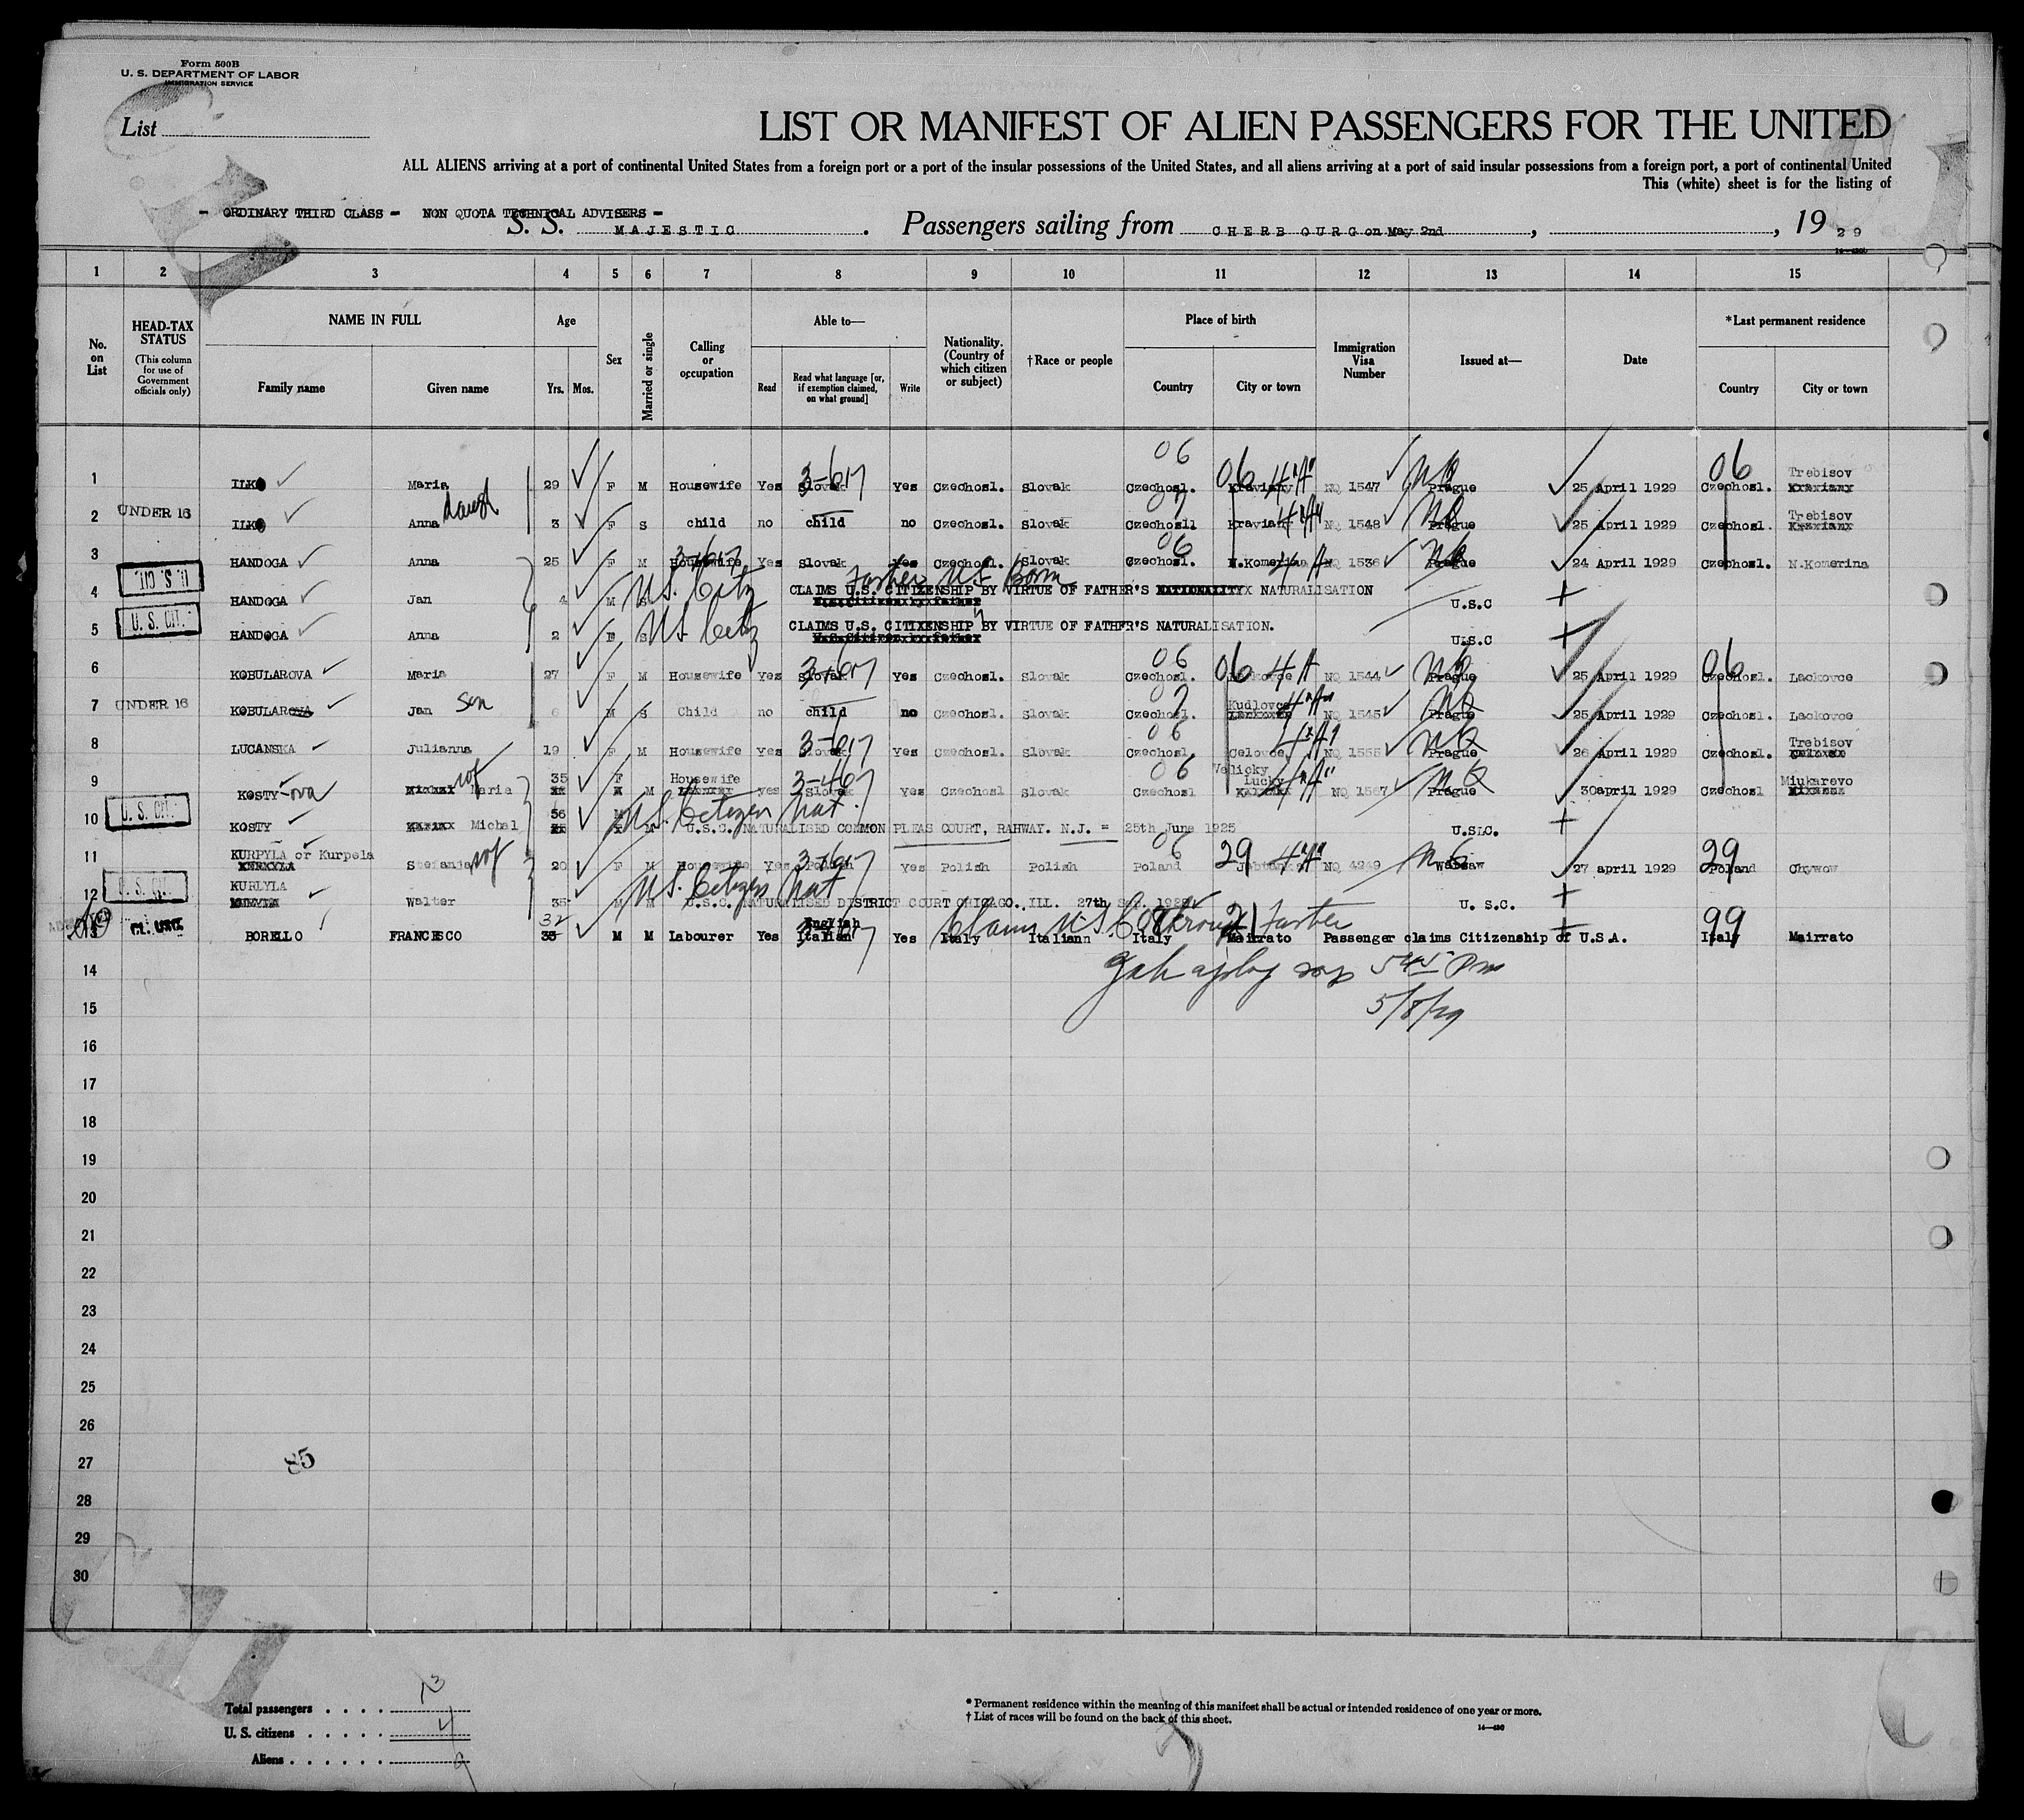 Form 500B
U. S. DEPARTMENT OF LABOR
IMMIGRATION SERVICE
List
LIST OR MANIFEST OF ALIEN PASSENGERS FOR THE UNITED
ALL ALIENS arriving at a port of continental United States from a foreign port or a port of the insular possessions of the United States, and all aliens arriving at a port of said insular possessions from a foreign port, a port of continental United
This (white) sheet is for the listing of
- ORDINARY THIRD CLASS - NON QUOTA TECHNICAL ADVISERS -
S. S. MAJESTIC. Passengers sailing from CHERBOURG on May 2nd, , 1929
1 2 3 4 5 6 7 8 9 10 11 12 13 14 15
No. on List
HEAD-TAX STATUS (This column for use of Government officials only)
NAME IN FULL Family name Given name
Age Yrs. Mos.
Sex
Married or single
Calling or occupation
Able to— Read Read what language [or, if exemption claimed, on what ground] Write
Nationality. (Country of which citizen or subject)
†Race or people
Place of birth Country City or town
Immigration Visa Number
Issued at—
Date
*Last permanent residence Country City or town
06
1 ILKO Maria 29 F M Housewife Yes Slovak 3-617 Yes Czechosl. Slovak Czechosl. 06 Kraviany 4"A" NQ 1547 Prague 25 April 1929 Czechosl. 06 Trebisov
2 UNDER 16 ILKO Anna daugt 3 F S child no child no Czechosl. Slovak Czechosl Kravian NQ 1548 Prague 25 April 1929 Czechosl. Trebisov
3 HANDOGA Anna 25 F M Housewife Yes Slovak Yes Czechosl. Slovak Czechosl. 06 N.Komerina NQ 1536 Prague 24 April 1929 Czechosl. N.Komerina
U. S. CIT.
4 HANDOGA Jan 4 M S U.S. Citz Father U.S. Born CLAIMS U.S. CITIZENSHIP BY VIRTUE OF FATHER'S NATIONALITYX NATURALISATION U.S.C
U. S. CIT.
5 HANDOGA Anna 2 F S U.S. Citz CLAIMS U.S. CITIXENSHIP BY VIRTUE OF FATHER'S NATURALISATION. U.S.C
6 KOBULAROVA Maria 27 F M Housewife Yes Slovak 3-617 Yes Czechosl. Slovak Czechosl. 06 06 4A NQ 1544 Prague 25 April 1929 Czechosl. 06 Lackovce
7 UNDER 16 KOBULAROVA Jan son 6 M S Child no child no Czechosl. Slovak Czechosl. Kudlovce NQ 1545 Prague 25 April 1929 Czechosl. Lackovce
8 LUCANSKA Julianna 19 F M Housewife Yes Slovak 3-617 Yes Czechosl. Slovak Czechosl. 06 Celovce NQ 1555 Prague 26 April 1929 Czechosl. Trebisov
9 KOSTY-ova Maria 35 F M Housewife yes Slovak Yes Czechosl Slovak Czechosl 06 Velicky Lucky NQ 1567 Prague 30april 1929 Czechosl Miukarevo
U. S. CIT.
10 KOSTY Michal 56 M M U.S. Citizen Nat. U.S.C. NATURALISED COMMON PLEAS COURT, RAHWAY. N.J. = 25th June 1925 U.S.C.
11 KURPYLA or Kurpela Stefania 20 F M Housewife Yes Polish 3-617 Yes Polish Polish Poland 29 4"A" NQ 4249 Warsaw 27 april 1929 Poland 29 Chywow
U. S. CIT.
12 KURLYLA Walter 35 M M U.S. Citizen Nat U.S.C. NATURALISED DISTRICT COURT CHICAGO. ILL. 27th Sep. U. S. C.
13 BORELLO FRANCESCO 32 33 M M Labourer Yes English Italian Yes Italy Italiann Italy Mairrato Claims U.S.C. through Father Passenger claims Citizenship of U.S.A. Italy 99 Mairrato
14
5 45 Pm
15
5/8/29
16
17
18
19
20
21
22
23
24
25
26
27
85
28
29
30
Total passengers . . . . 13
U. S. citizens . . . . . 4
Aliens . . . . . . 9
* Permanent residence within the meaning of this manifest shall be actual or intended residence of one year or more.
† List of races will be found on the back of this sheet.